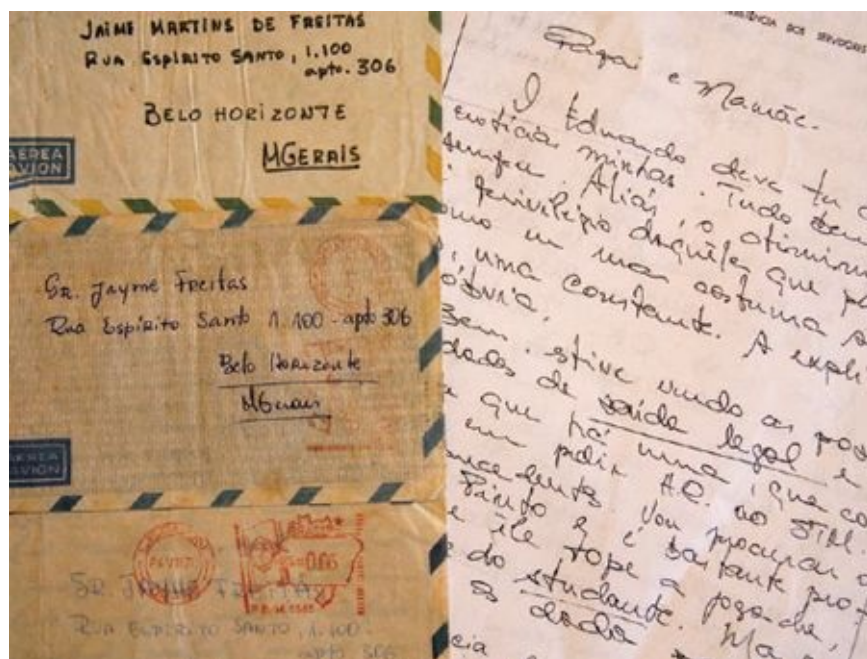 JAIME MARTINS DE FREITAS
RUA ESPÍRITO SANTO, 1.100
apto. 306
BELO HORIZONTE
MGERAIS
AÉREA
AVION
SR. Jayme Freitas
Rua Espírito Santo 1.100 - apto 306
Belo Horizonte
MGerais
AÉREA
AVION
006
SR. JAYME FREITAS
RUA ESPÍRITO SANTO, 1.100
apto 306
DOS SERVIDORES
Papai e Mamãe.
O Eduardo deve ter
notícias minhas. Tudo bem
sempre. Aliás, o otimismo
privilégio daquêles que
como eu mas costuma
uma constante. A expli
óbvia.
Bem, estive vendo as pos
dades de saída legal e
e que há uma que
em pedir A.O. ao STM
Vou procurar
Pinto e é bastante pro
e êle tope a
do studante. Ma